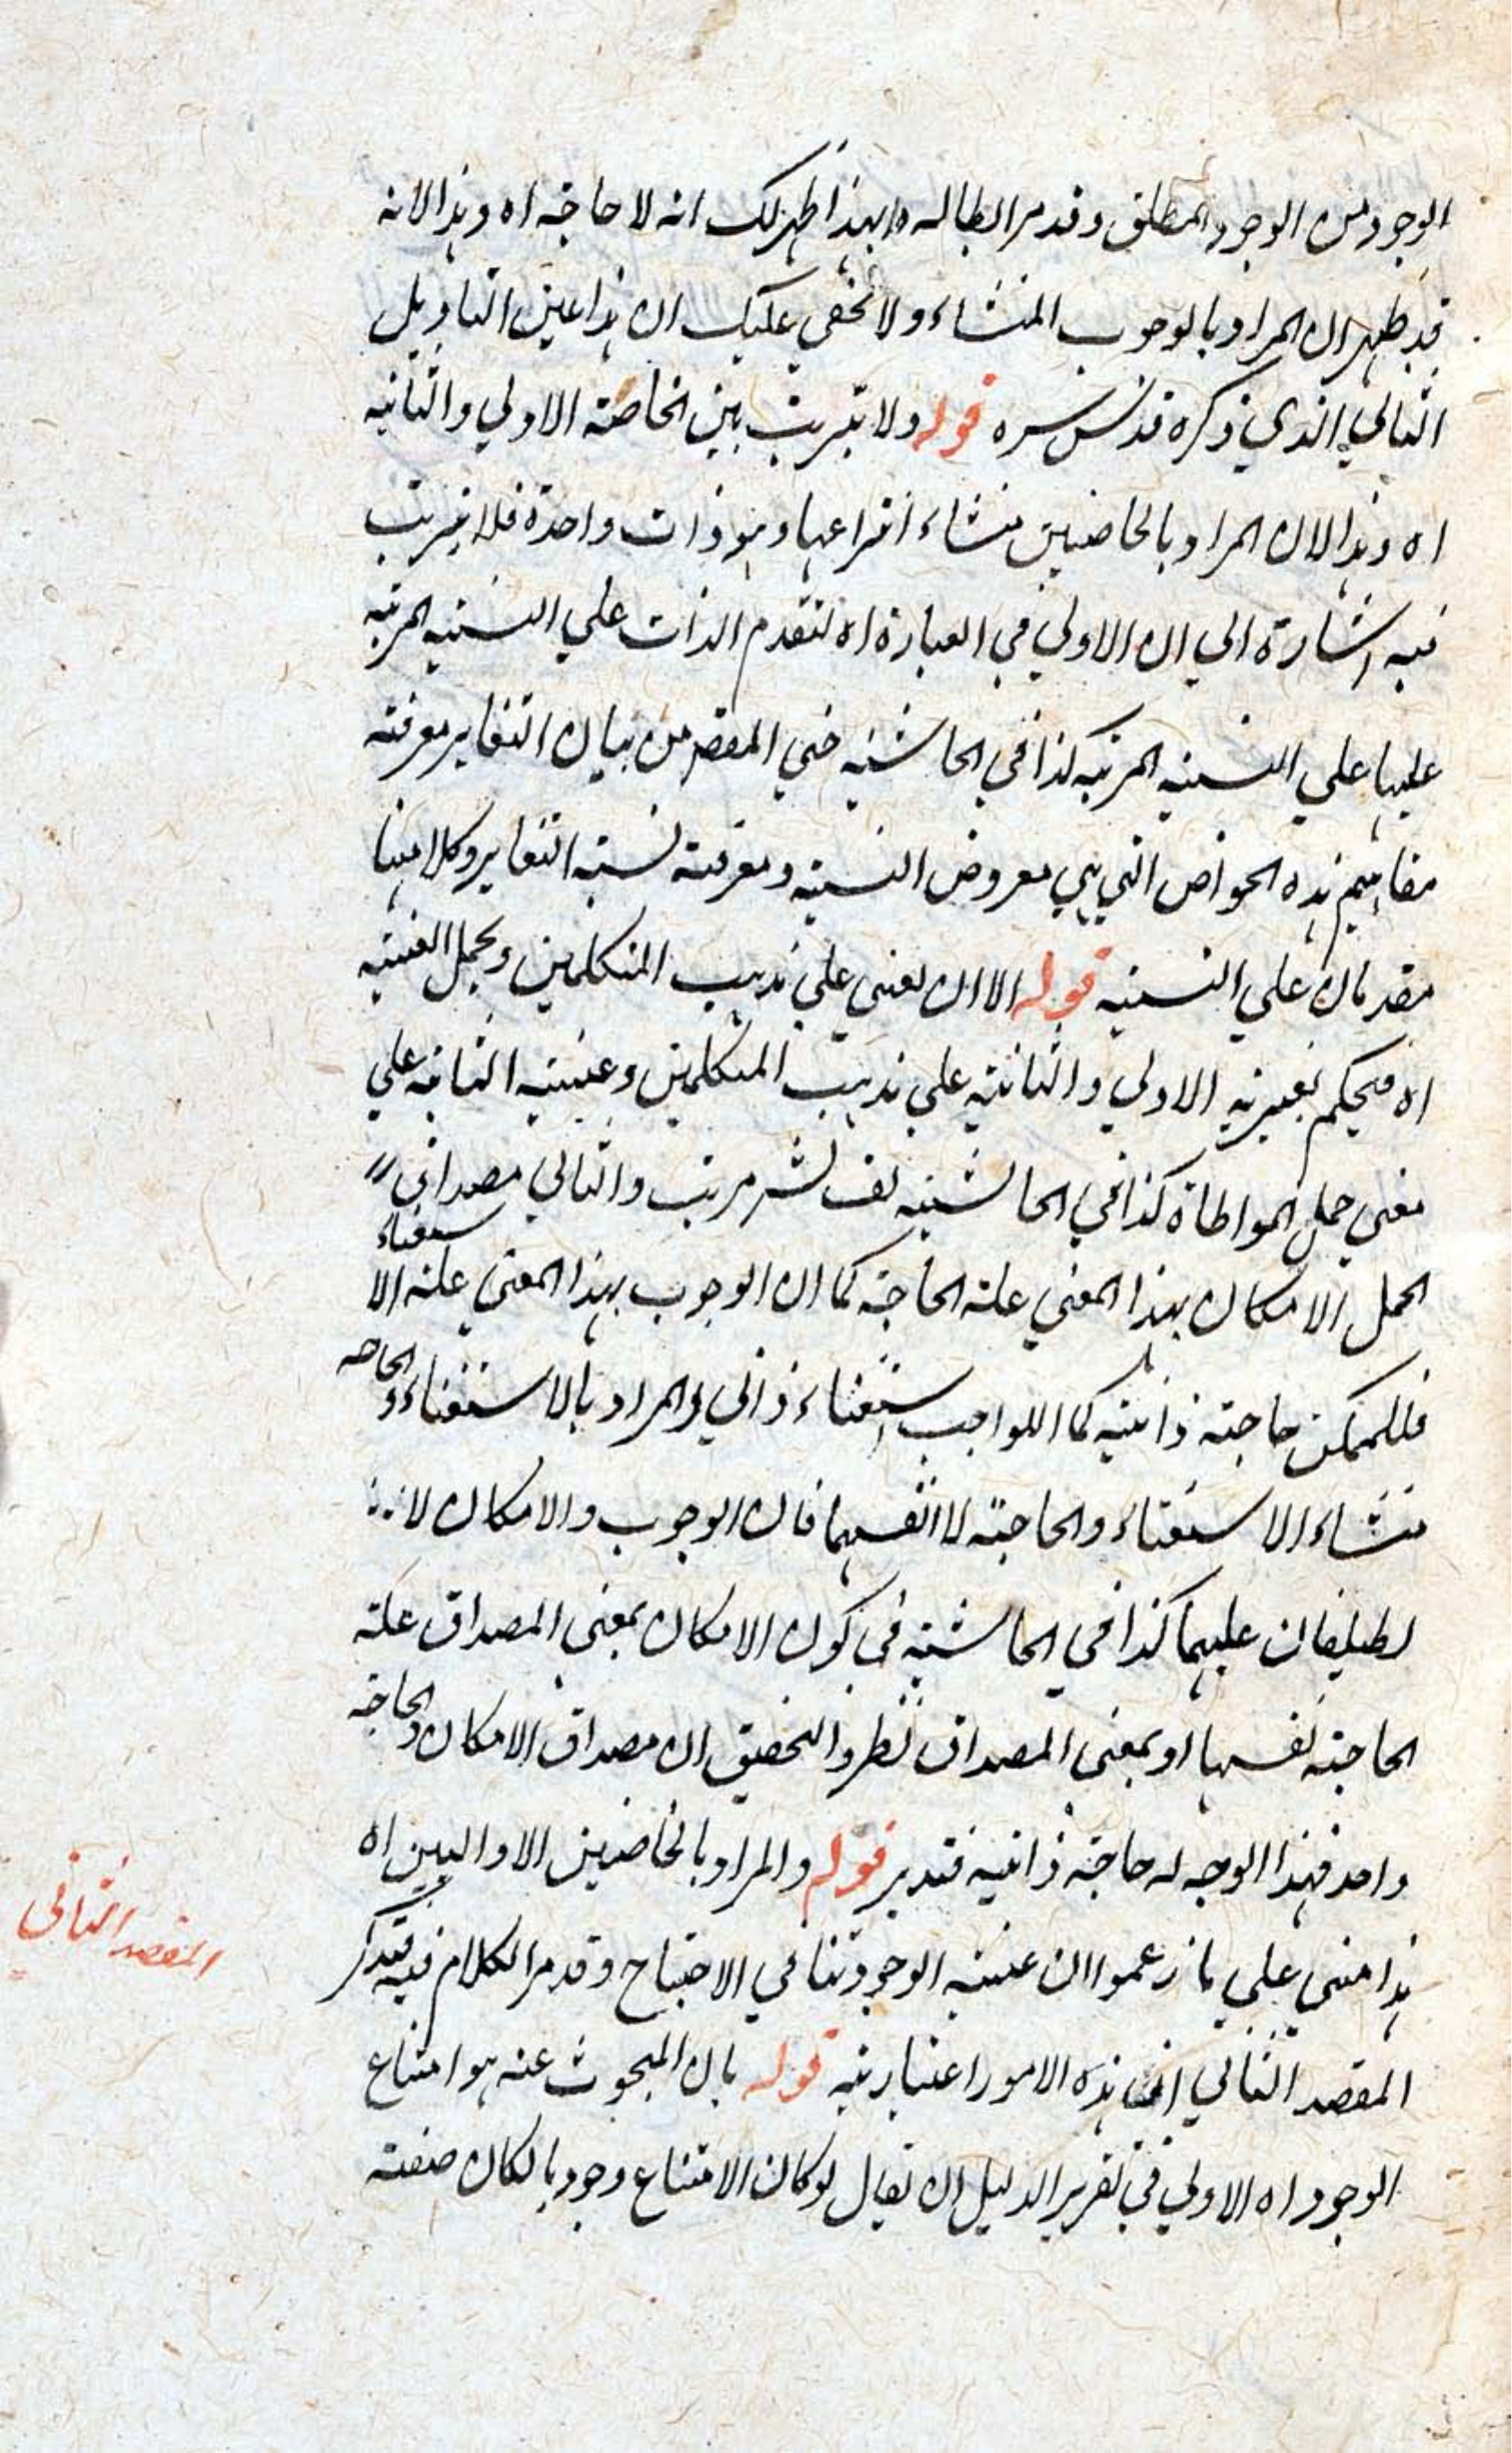 الوجود من الوجود المطلق وقد مر ابطاله وبهذا ظهر لك انه لا حاجة اه وهذا لانه
قد ظهر ان المراد بالوجوب المنشاء ولا يخفى عليك ان هذا عين التاويل
الثاني الذي ذكره قدس سره قوله ولا ترتيب بين الخاصة الاولي والثانية
اه وهذا لان المراد بالخاصتين منشاء انتزاعها وهو ذات واحدة فلا ترتيب
فيه اشارة الي ان الاولي في العبارة اه لتقدم الذات علي النسبة المرتبة
عليها علي النسبة المرتبة كذا في الحاشية من بيان التغاير معرفة
مفاهيم هذه الخواص التي هي معروض النسبة ومعرفة نسبة التغاير وكلاهما
مقدمان علي النسبة قوله الا ان يعنى علي مذهب المتكلمين ويحمل العينية
اه فيحكم بغيرية الاولي والثانية علي مذهب المتكلمين وعينية الثانية علي
معنى حمل المواطاة كذا في الحاشية لف نشر مرتب والتالي مصداق
الحمل الامكان بهذا المعني علة الحاجة كما ان الوجوب بهذا المعنى علة الاستغناء
فللممكن حاجة ذاتية كما للواجب استغناء ذاتي والمراد بالاستغناء والحاجة
منشاء الاستغناء والحاجة لا انفسهما فان الوجوب والامكان لا
يطلقان عليهما كذا في الحاشية في كون الامكان بمعنى المصداق علة
الحاجة نفسها او بمعنى المصداق نظر والتحقيق ان مصداق الامكان والحاجة
واحد فبهذا الوجه له حاجة ذاتية فتدبر قوله والمراد بالخاصتين الاوليين اه
هذا مبني علي ما زعموا ان عينية الوجود تنافي الاحتياج وقد مر الكلام فيه فتذكر
المقصد الثاني ان هذه الامور اعتبارية قوله بان المبحوث عنه هو امتناع
الوجود اه الاولي في تقرير الدليل ان يقال لو كان الامتناع وجوديا لكان صفة
المقصد الثاني